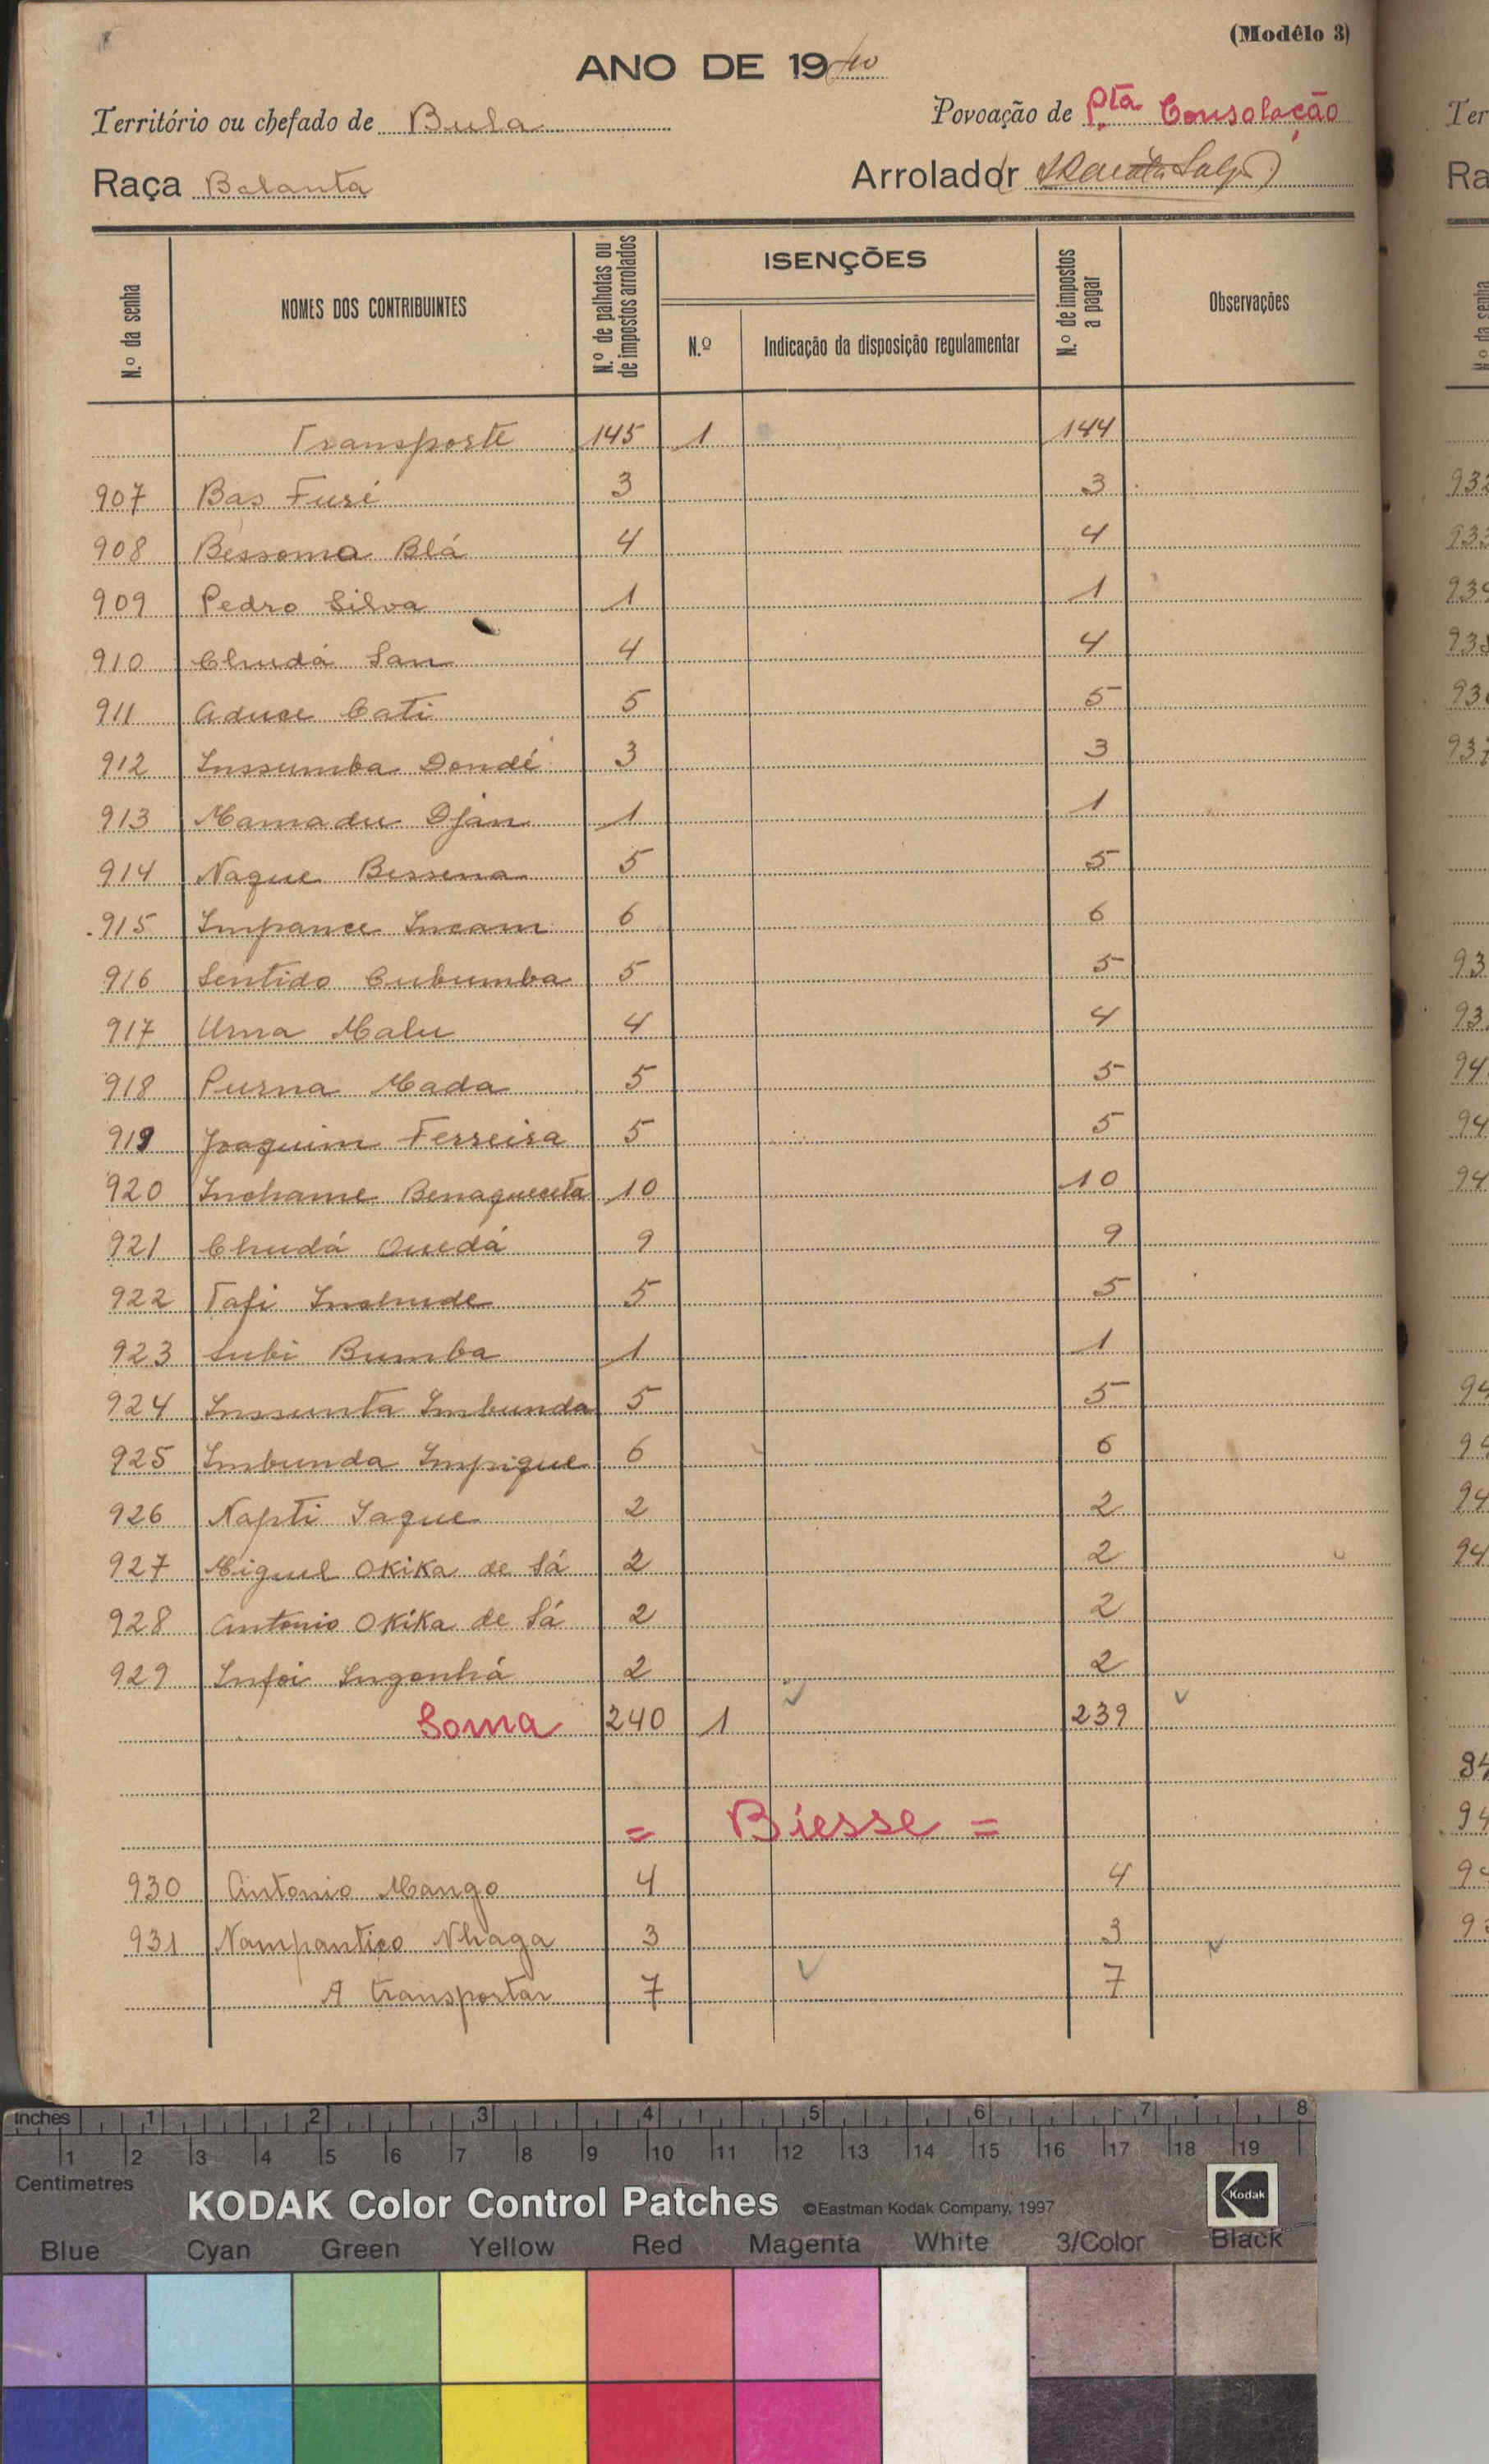 (Modêlo 3)
ANO DE 1940
Território ou chefado de Bula Povoação de Pta. Consolação
Raça Balanta Arrolador
N.º da senha NOMES DOS CONTRIBUINTES N.º de palhotas ou de impostos arrolados ISENÇÕES N.º Indicação da disposição regulamentar N.º de impostos a pagar Observações
Transporte 145 1 144
907 Bas Furé 3 3
908 Bessoma Blá 4 4
909 Pedro Silva 1 1
910 Chudá San 4 4
911 Aduce Cati 5 5
912 Inssumba Dondé 3 3
913 Mamadu Djan 1 1
914 Naque Bissena 5 5
915 Impance Incam 6 6
916 Sentido Cubumba 5 5
917 Urna Malu 4 4
918 Purna Mada 5 5
919 Joaquim Ferreira 5 5
920 Inchame 10 10
921 Chudá Quedá 9 9
922 Tafi Inchude 5 5
923 Subi Bumba 1 1
924 Inssunta Imbunda 5 5
925 Imbunda Impigue 6 6
926 Napti Iaque 2 2
927 Miguel Okika de Sá 2 2
928 Antonio Okika de Sá 2 2
929 Infoi Ingonhá 2 2
Soma 240 1 239
= Biesse =
930 Antonio Mango 4 4
931 Nampantico Nhaga 3 3
A transportar 7 7
inches 1 2 3 4 5 6 7 8
1 2 3 4 5 6 7 8 9 10 11 12 13 14 15 16 17 18 19
Centimetres
KODAK Color Control Patches ©Eastman Kodak Company, 1997 Kodak
Blue Cyan Green Yellow Red Magenta White 3/Color Black